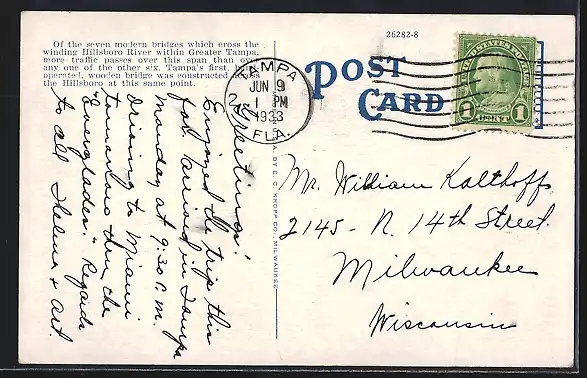 Of the seven modern bridges which cross the
winding Hillsboro River within Greater Tampa,
more traffic passes over this span than over
any one of the other six. Tampa's first hand
operated, wooden bridge was constructed across
the Hillsboro at this same point.
26282-8
POST
CARD
TAMPA
2
JUN 9
1 PM
1933
FLA.
1 1
Greetings!
Enjoyed the trip this
far arrived in Tampa
Monday at 9:30 a.m.
driving to Miami
tomorrow thru the
"Everglades." Regards
to all Thelma & Art.
BY E. C. KROPP CO., MILWAUKEE
Mr. William Kalthoff
2145 - N. 14th Street.
Milwaukee
Wisconsin